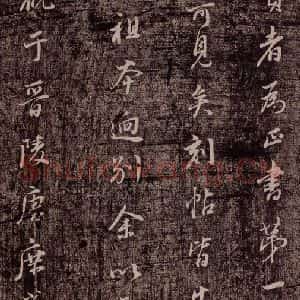 者為正書第一
可見矣刻帖皆
祖本迥別余以
于晉陵唐